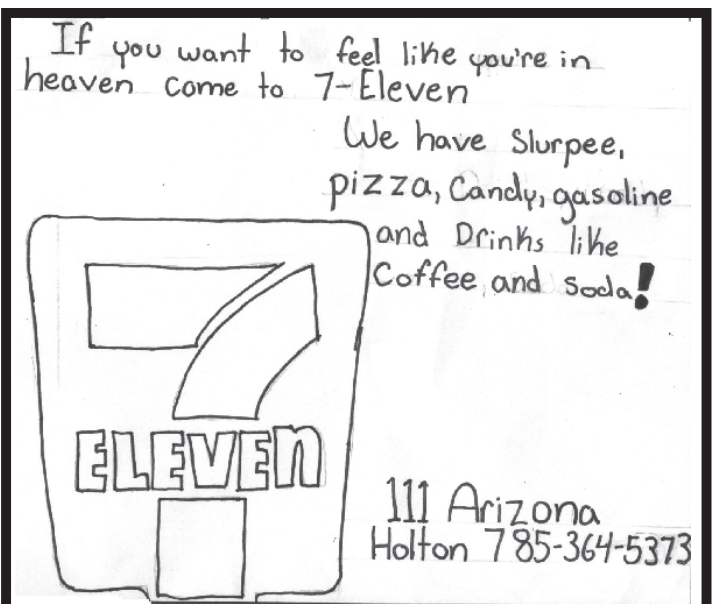 If you want to feel like you're in
heaven come to 7-Eleven
We have Slurpee,
pizza, Candy, gasoline
and Drinks like
Coffee, and soda!
7
ELEVEn
111 Arizona
Holton 785-364-5373